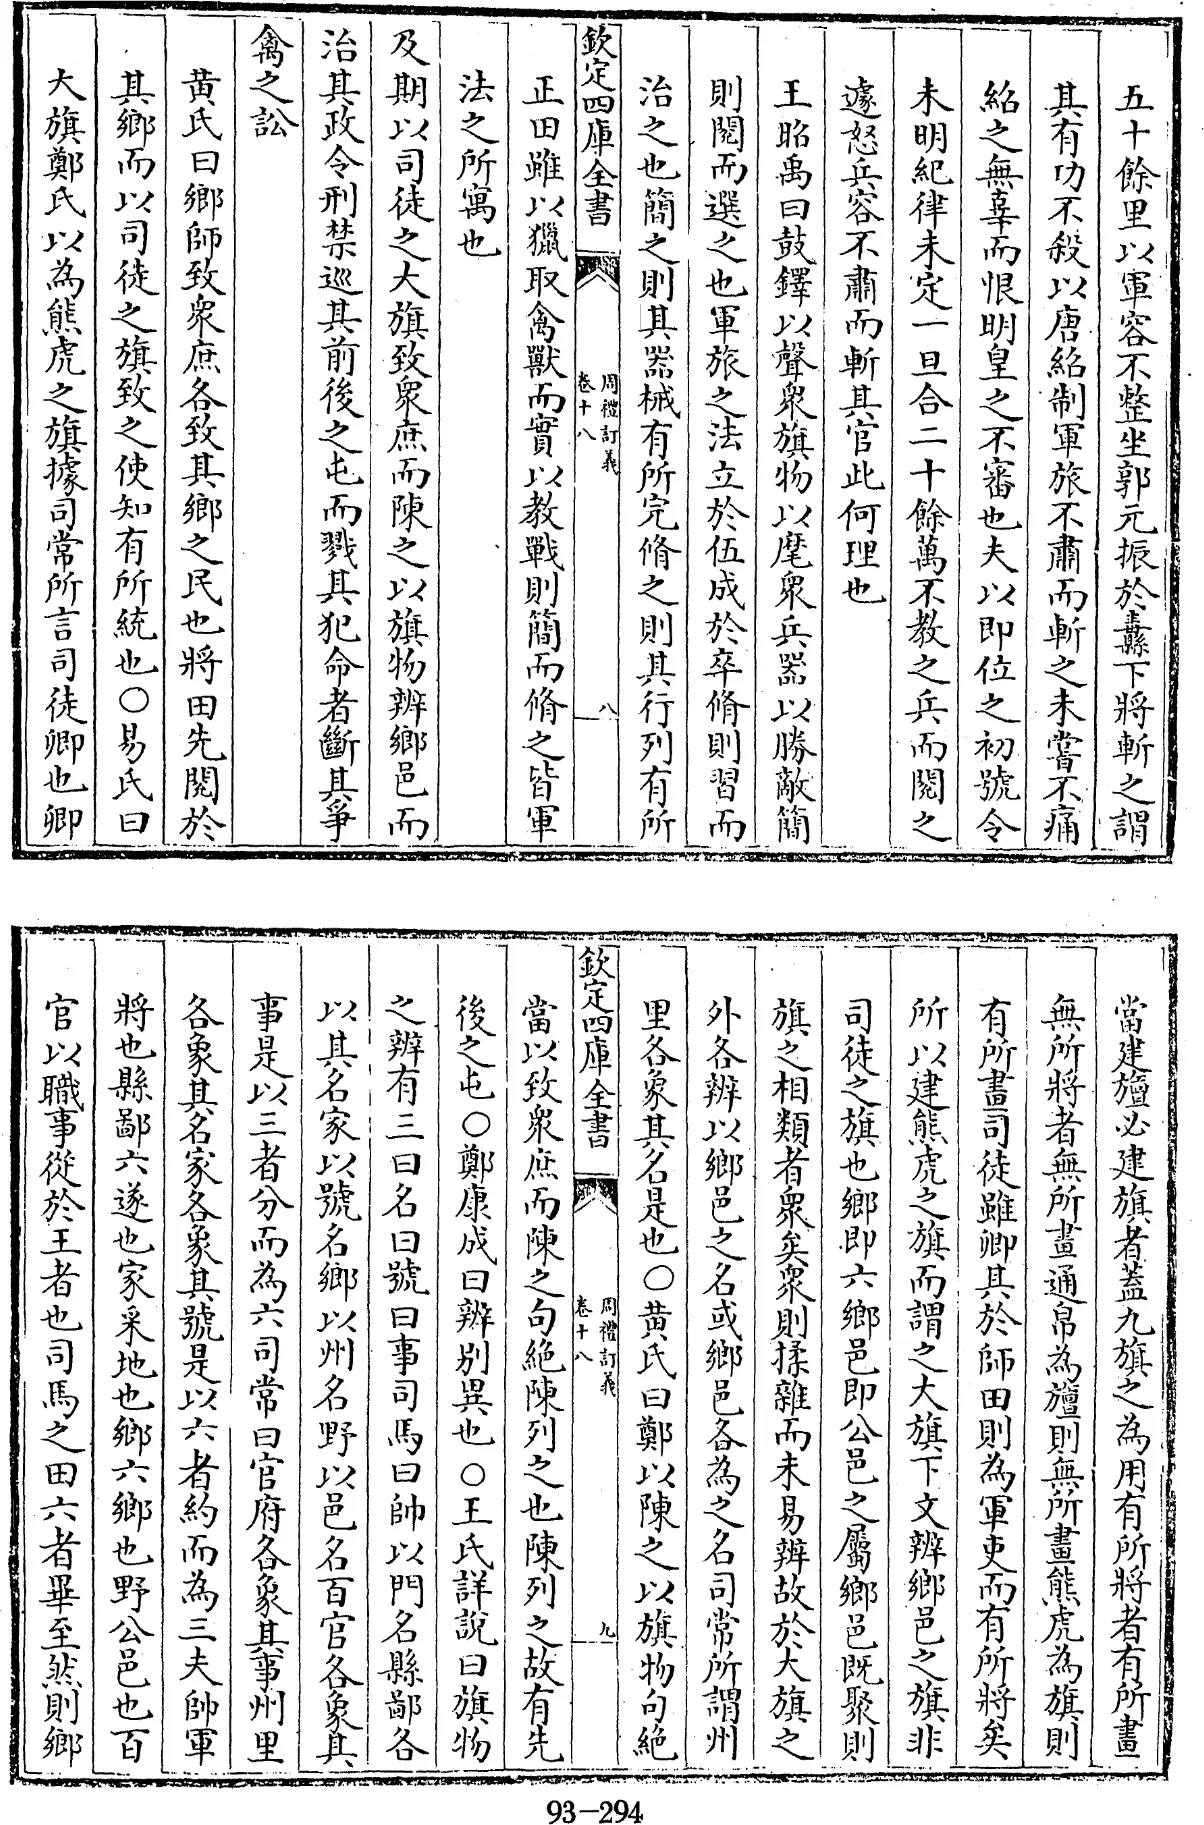 五十餘里以軍容不整坐郭元振於纛下將斬之謂
其有功不殺以唐紹制軍旅不肅而斬之未嘗不痛
紹之無辜而恨明皇之不審也夫以即位之初號令
未明紀律未定一旦合二十餘萬不教之兵而閱之
遽怒兵容不肅而斬其官此何理也
王昭禹曰鼓鐸以聲衆旗物以麾衆兵器以勝敵簡
則閱而選之也軍旅之法立於伍成於卒脩則習而
治之也簡之則其器械有所完脩之則其行列有所
欽定四庫全書
周禮訂義
卷十八
八
正田雖以獵取禽獸而實以教戰則簡而脩之皆軍
法之所寓也
及期以司徒之大旗致衆庶而陳之以旗物辨鄉邑而
治其政令刑禁巡其前後之屯而戮其犯命者斷其爭
禽之訟
黄氏曰鄉師致衆庶各致其鄉之民也將田先閱於
其鄉而以司徒之旗致之使知有所統也○易氏曰
大旗鄭氏以為熊虎之旗據司常所言司徒卿也卿
當建旜必建旗者蓋九旗之為用有所將者有所畫
無所將者無所畫通帛為旜則無所畫熊虎為旗則
有所畫司徒雖卿其於師田則為軍吏而有所將矣
所以建熊虎之旗而謂之大旗下文辨鄉邑之旗非
司徒之旗也鄉即六鄉邑即公邑之屬鄉邑既聚則
旗之相類者衆矣衆則揉雜而未易辨故於大旗之
外各辨以鄉邑之名或鄉邑各為之名司常所謂州
里各象其名是也○黄氏曰鄭以陳之以旗物句絶
欽定四庫全書
周禮訂義
卷十八
九
當以致衆庶而陳之句絶陳列之也陳列之故有先
後之屯○鄭康成曰辨別異也○王氏詳說曰旗物
之辨有三曰名曰號曰事司馬曰帥以門名縣鄙各
以其名家以號名鄉以州名野以邑名百官各象其
事是以三者分而為六司常曰官府各象其事州里
各象其名家各象其號是以六者約而為三夫帥軍
將也縣鄙六遂也家采地也鄉六鄉也野公邑也百
官以職事從於王者也司馬之田六者畢至然則鄉
93-294